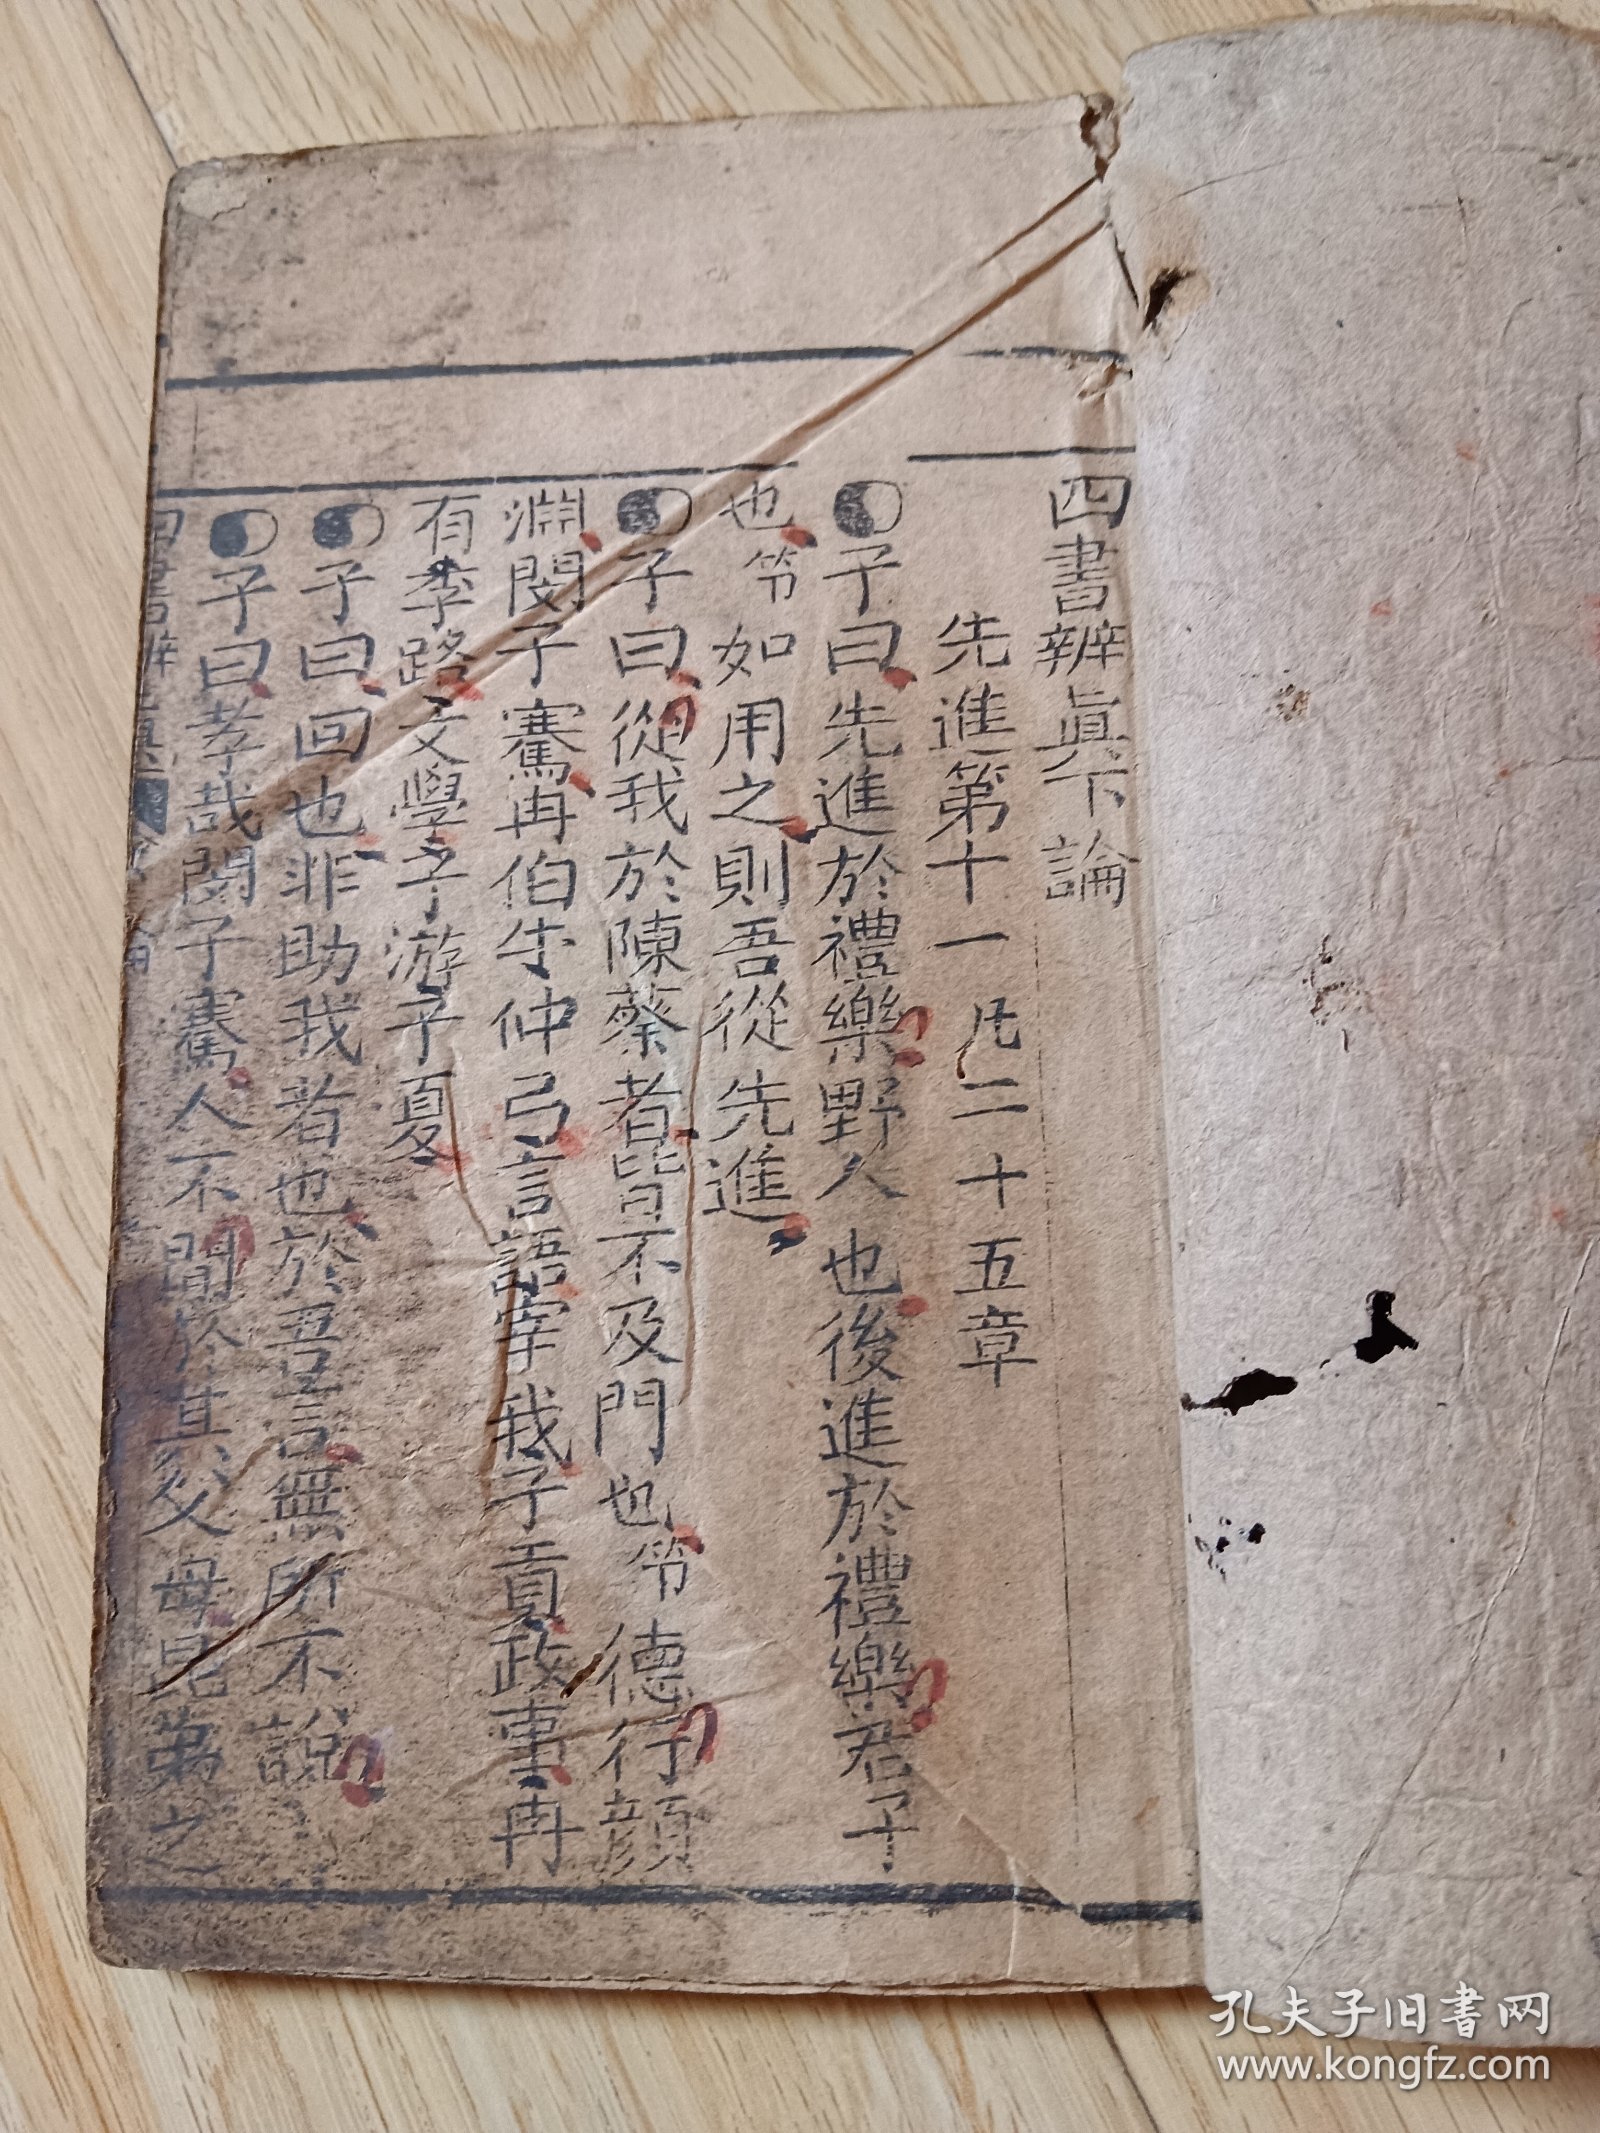 四書辨眞下論
先進第十一 凡二十五章
子曰先進於禮樂野人也後進於禮樂君子
也 節 如用之則吾從先進
子曰從我於陳蔡者皆不及門也 節 德行顏
淵閔子騫冉伯牛仲弓言語宰我子貢政事冉
有季路文學子游子夏
子曰回也非助我者也於吾言無所不說
子曰孝哉閔子騫人不間於其父母昆弟之
四書辨眞
孔夫子旧书网
www.kongfz.com